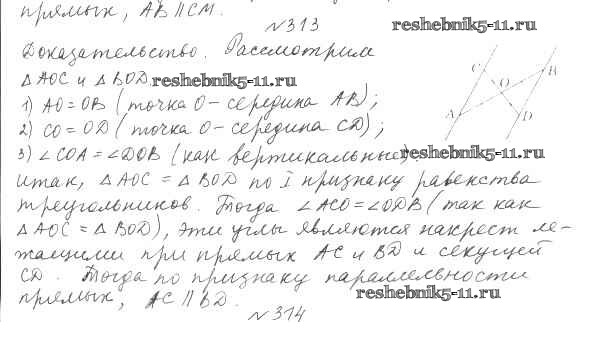 прямых, AB ∥ CM.
N 313
reshebnik5-11.ru
Доказательство. Рассмотрим
△ AOC и △ BOD.
reshebnik5-11.ru
1) AO = OB (точка O - середина AB);
2) CO = OD (точка O - середина CD);
3) ∠COA = ∠DOB (как вертикальные),
reshebnik5-11.ru
C
O
B
A
D
итак, △ AOC = △ BOD по I признаку равенства
треугольников. Тогда ∠ACO = ∠ODB (так как
△ AOC = △ BOD), эти углы являются накрест ле-
жащими при прямых AC и BD и секущей
CD. Тогда по признаку параллельности
прямых, AC ∥ BD.
reshebnik5-11.ru
N 314